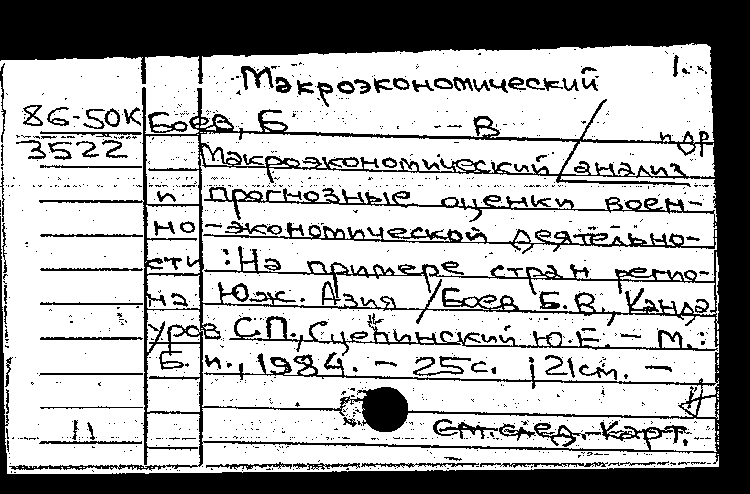 Макроэкономический 1.
86-50К Боев, Б В
и др
3522 Макроэкономический анализ
и прогнозные оценки воен-
но-экономической деятельно-
сти : На примере стран регио-
на Юж. Азия / Боев Б.В., Канда
уров С.П., Сцепинский Ю.Е. - М.:
Б. и., 1984. - 25с. ; 21см. -
11 См. след. карт.